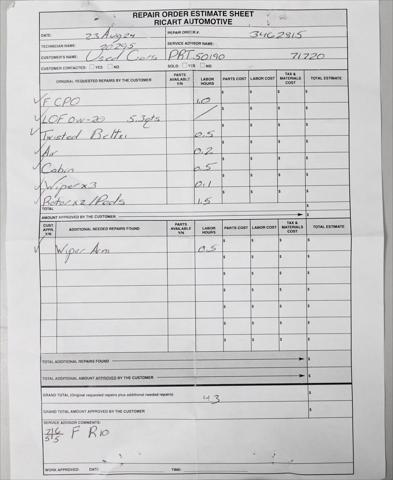 REPAIR ORDER ESTIMATE SHEET
RICART AUTOMOTIVE
DATE: 23 Aug 24 REPAIR ORDER #: 3462815
TECHNICIAN NAME: 20295 SERVICE ADVISOR NAME:
CUSTOMER'S NAME: Used Cars PRT50190 71720
CUSTOMER CONTACTED: ☐ YES ☐ NO SOLD: ☐ YES ☐ NO
ORIGINAL REQUESTED REPAIRS BY THE CUSTOMER PARTS AVAILABLE Y/N LABOR HOURS PARTS COST LABOR COST TAX & MATERIALS COST TOTAL ESTIMATE
✓ F CPO 1.0 $ $ $ $
✓ LOF 0w-20 5.3qts / $ $ $ $
✓ Twisted 0.5 $ $ $ $
✓ Air 0.2 $ $ $ $
✓ Cabin 0.5 $ $ $ $
✓ Wiper x 3 0.1 $ $ $ $
✓ Rotor x 2 / Pads 1.5 $ $ $ $
TOTAL $
AMOUNT APPROVED BY THE CUSTOMER $
CUST. APPR. Y/N ADDITIONAL NEEDED REPAIRS FOUND PARTS AVAILABLE Y/N LABOR HOURS PARTS COST LABOR COST TAX & MATERIALS COST TOTAL ESTIMATE
✓ Wiper Arm 0.5 $ $ $ $
$ $ $ $
$ $ $ $
$ $ $ $
$ $ $ $
$ $ $ $
TOTAL ADDITIONAL REPAIRS FOUND $
TOTAL ADDITIONAL AMOUNT APPROVED BY THE CUSTOMER $
GRAND TOTAL (Original requested repairs plus additional needed repairs) 4.3 $
GRAND TOTAL AMOUNT APPROVED BY THE CUSTOMER $
SERVICE ADVISOR COMMENTS:
7/6 F R10
5/5
WORK APPROVED: DATE: TIME: